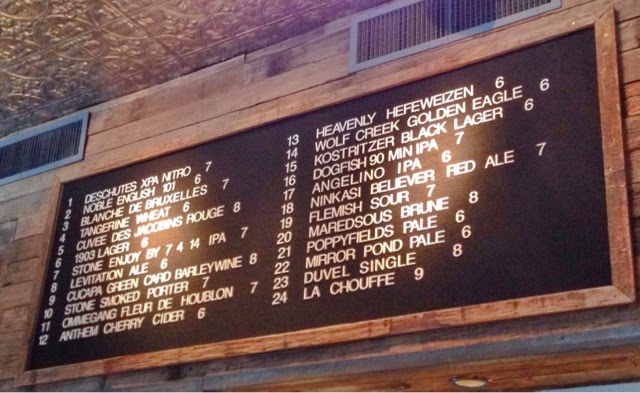 1 DESCHUTES XPA NITRO 7
2 NOBLE ENGLISH 101 6
3 BLANCHE DE BRUXELLES 7
4 TANGERINE WHEAT 6
5 CUVEE DES JACOBINS ROUGE 8
6 1903 LAGER 6
7 STONE ENJOY BY 7 4 14 IPA 7
8 LEVITATION ALE 6
9 CUCAPA GREEN CARD BARLEYWINE 8
10 STONE SMOKED PORTER 7
11 OMMEGANG FLEUR DE HOUBLON 7
12 ANTHEM CHERRY CIDER 6
13 HEAVENLY HEFEWEIZEN 6
14 WOLF CREEK GOLDEN EAGLE 6
15 KOSTRITZER BLACK LAGER 6
16 DOGFISH 90 MIN IPA 7
17 ANGELINO IPA 6
18 NINKASI BELIEVER RED ALE 7
19 FLEMISH SOUR 7
20 MAREDSOUS BRUNE 8
21 POPPYFIELDS PALE 6
22 MIRROR POND PALE 6
23 DUVEL SINGLE 8
24 LA CHOUFFE 9